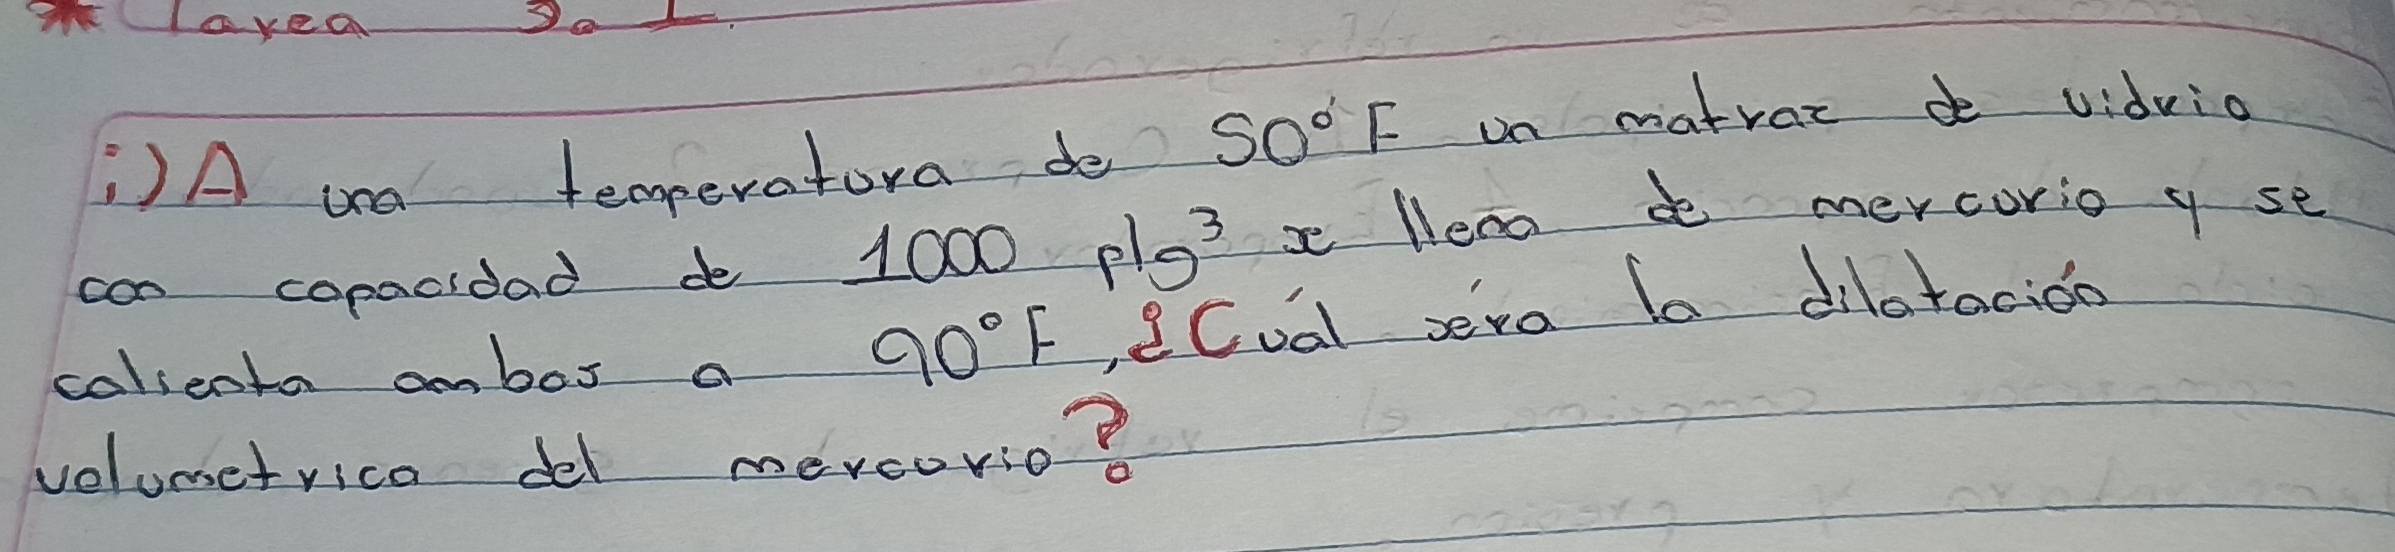 * Tarea 3.1.
i) A una temperatura de 50°F un matraz de vidrio
con capacidad de 1000 plg³ se llena de mercurio y se
calienta ambos a 90°F, ¿Cuál séra la dilatación
volumetrica del mercurio?